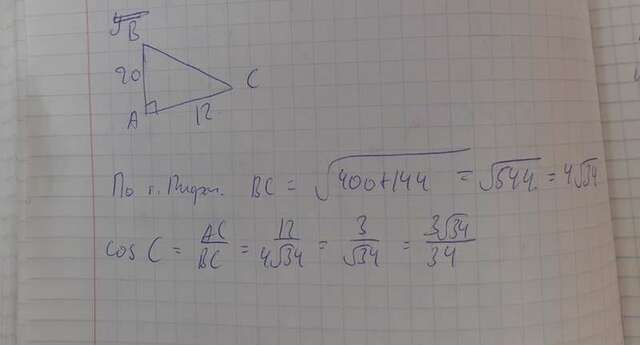 B
20
C
A
12
По т. Пифаг. BC = √400+144 = √544 = 4√34
cos C = AC/BC = 12/4√34 = 3/√34 = 3√34/34